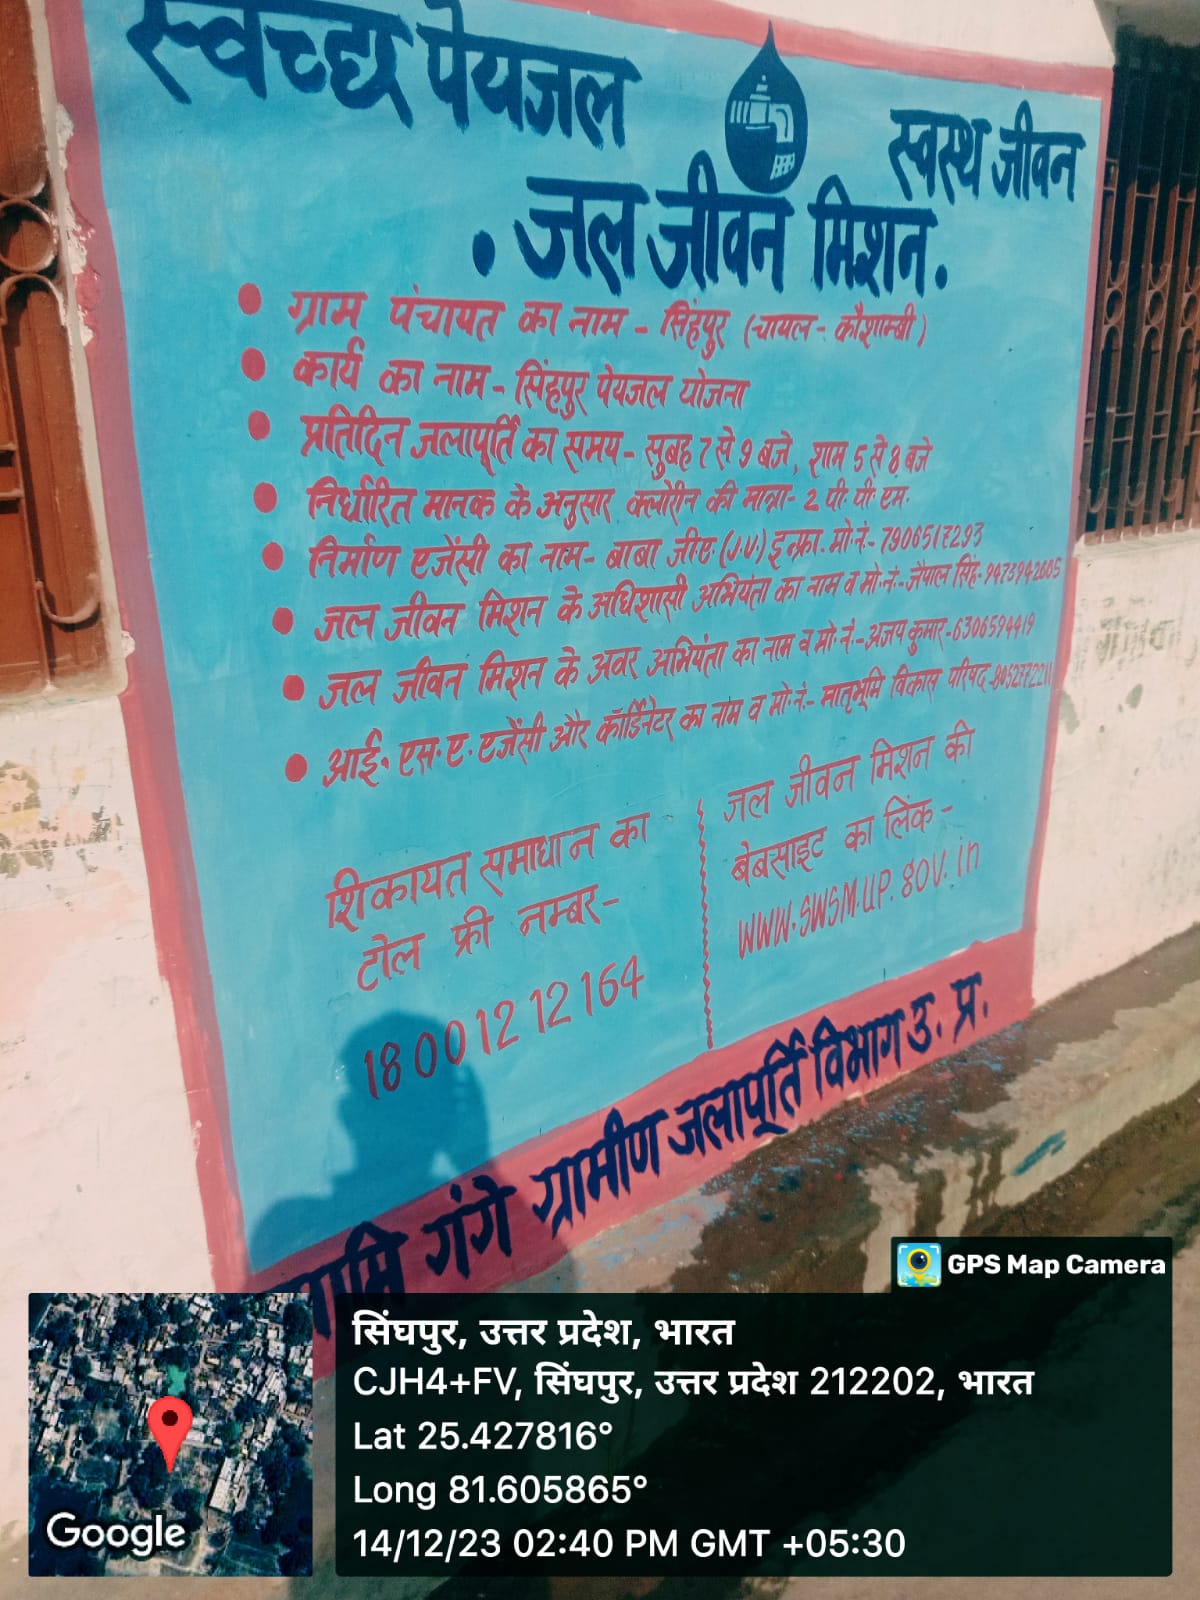 स्वच्छ पेयजल
स्वस्थ जीवन
. जल जीवन मिशन.
• ग्राम पंचायत का नाम - सिंहपुर (चायल - कौशाम्बी)
• कार्य का नाम - सिंहपुर पेयजल योजना
• प्रतिदिन जलापूर्ति का समय - सुबह 7 से 9 बजे, शाम 5 से 8 बजे
• निर्धारित मानक के अनुसार क्लोरीन की मात्रा - 2 पी. पी. एम.
• निर्माण एजेंसी का नाम - बाबा जीए (J.V.) इन्फ्रा. मो.नं.- 7906517293
• जल जीवन मिशन के अधिशासी अभियंता का नाम व मो.नं.- जैपाल सिंह- 9473942605
• जल जीवन मिशन के अवर अभियंता का नाम व मो.नं.- अजय कुमार- 6306594419
• आई. एस. ए. एजेंसी और कॉर्डिनेटर का नाम व मो.नं.- मातृभूमि विकास परिषद - 8052772211
शिकायत समाधान का
टोल फ्री नम्बर-
18001212164
जल जीवन मिशन की
बेबसाइट का लिंक -
WWW.SWSM.UP.gov.in
नमामि गंगे ग्रामीण जलापूर्ति विभाग उ. प्र.
GPS Map Camera
सिंघपुर, उत्तर प्रदेश, भारत
CJH4+FV, सिंघपुर, उत्तर प्रदेश 212202, भारत
Lat 25.427816°
Long 81.605865°
14/12/23 02:40 PM GMT +05:30
Google